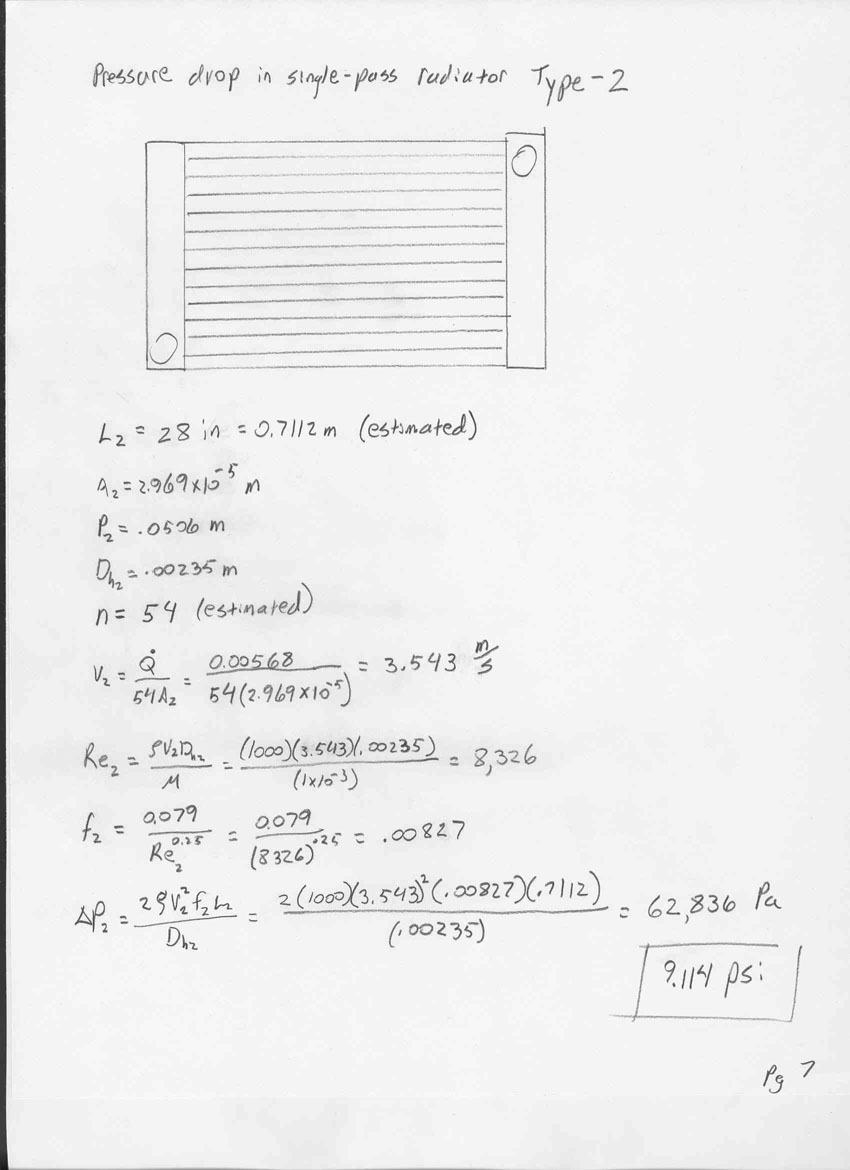 Pressure drop in single-pass radiator Type-2
L₂ = 28 in = 0.7112 m (estimated)
A₂ = 2.969×10⁻⁵ m
P₂ = .0506 m
Dₕ₂ = .00235 m
n = 54 (estimated)
V₂ = Q̇ / 54A₂ = 0.00568 / 54(2.969×10⁻⁵) = 3.543 m/s
Re₂ = ρV₂Dₕ₂ / μ = (1000)(3.543)(.00235) / (1×10⁻³) = 8,326
f₂ = 0.079 / Re₂^0.25 = 0.079 / (8326)^.25 = .00827
ΔP₂ = 2ρV₂²f₂L₂ / Dₕ₂ = 2(1000)(3.543)²(.00827)(.7112) / (.00235) = 62,836 Pa
9.114 psi
Pg 7